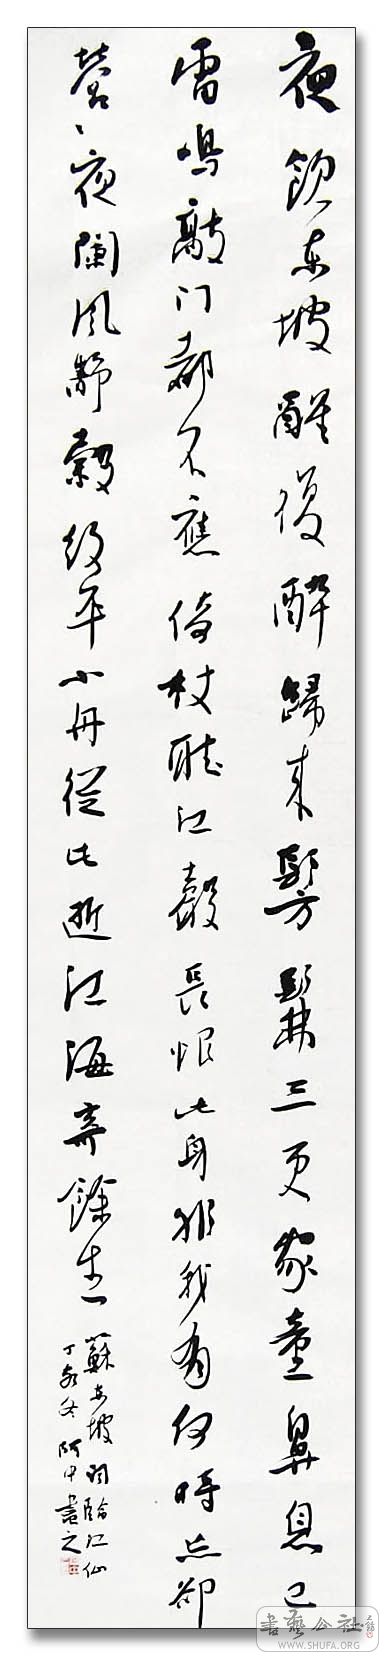 夜飲東坡醒復醉歸来髣髴三更家童鼻息已
雷鳴敲门都不應倚杖聽江聲長恨此身非我有何時忘卻
營〻夜闌風靜縠紋平小舟從此逝江海寄餘生
蘇東坡詞臨江仙
丁亥冬阿中書之
書藝公社
WWW.SHUFA.ORG